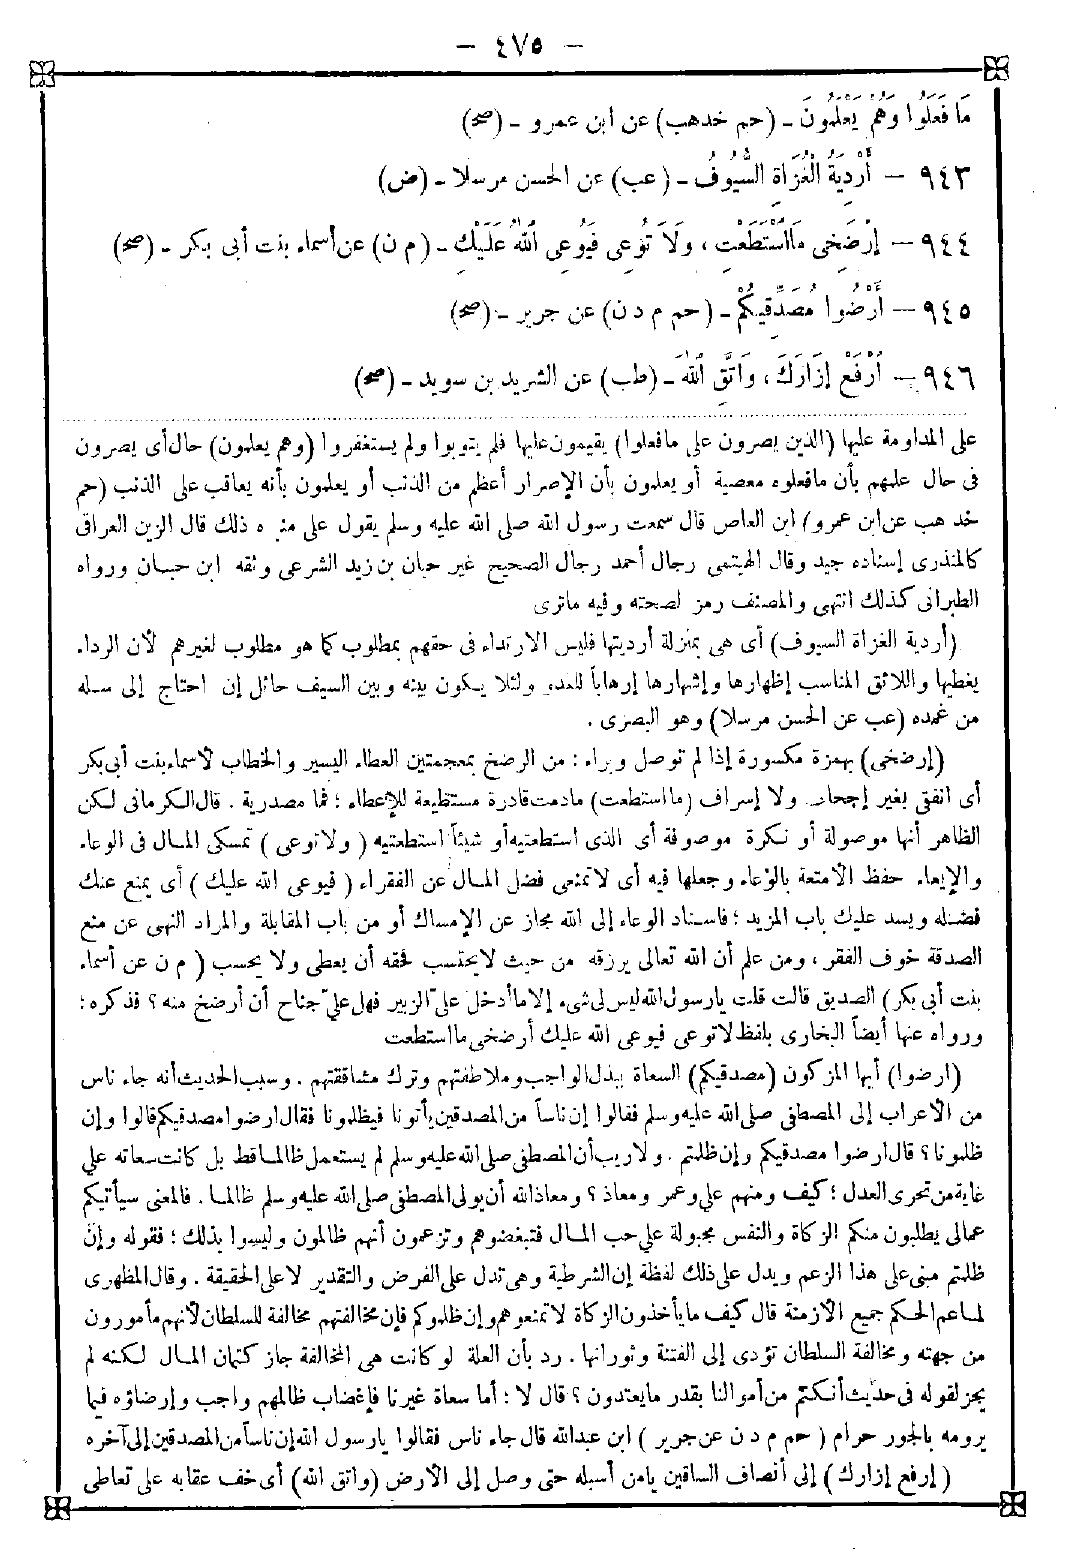 - ٤٧٥ -
مَا فَعَلُوا وَهُمْ يَعْلَمُونَ - (حم خدهب) عن ابن عمرو - (صح)
٩٤٣ - أَرْدِيَةُ الْغُزَاةِ السُّيُوفُ - (عب) عن الحسن مرسلا - (ض)
٩٤٤ - إرْضَخِى مَااسْتَطَعْتِ ، وَلَا تُوعِى فَيُوعِى اللهُ عَلَيْكِ - (م ن) عن أسماء بنت أبى بكر - (صح)
٩٤٥ - أَرْضُوا مُصَدِّقِيكُمْ - (حم م د ن) عن جرير - (صح)
٩٤٦ - اُرْفَعْ إِزَارَكَ ، وَاتَّقِ اللهَ - (طب) عن الشريد بن سويد - (صح)
على المداومة عليها (الذين يصرون على مافعلوا) يقيمون عليها فلم يتوبوا ولم يستغفروا (وهم يعلمون) حال أى يصرون
فى حال علمهم بأن مافعلوه معصية أو يعلمون بأن الإصرار أعظم من الذنب أو يعلمون بأنه يعاقب على الذنب (حم
خد هب عن ابن عمرو) ابن العاص قال سمعت رسول الله صلى الله عليه وسلم يقول على منبره ذلك قال الزين العراقى
كالمنذرى إسناده جيد وقال الهيتمى رجال أحمد رجال الصحيح غير حبان بن زيد الشرعى وثقه ابن حبان ورواه
الطبرانى كذلك انتهى والمصنف رمز لصحته وفيه ماترى
(أردية الغزاة السيوف) أى هى بمنزلة أرديتها فليس الارتداء فى حقهم بمطلوب كما هو مطلوب لغيرهم لأن الرداء
يغطيها واللائق المناسب إظهارها وإشهارها إرهاباً للعدو ولئلا يكون بينه وبين السيف حائل إن احتاج إلى سله
من غمده (عب عن الحسن مرسلا) وهو البصرى .
(إرضخى) بهمزة مكسورة إذا لم توصل وبراء : من الرضخ بمعجمتين العطاء اليسير والخطاب لأسماء بنت أبى بكر
أى انفقى بغير إجحاف ولا إسراف (ما استطعت) مادمت قادرة مستطيعة للإعطاء ؛ فما مصدرية . قال الكرمانى لكن
الظاهر أنها موصولة أو نكرة موصوفة أى الذى استطعتيه أو شيئاً استطعتيه ( ولاتوعى ) تمسكى المال فى الوعاء
والإيعاء حفظ الأمتعة بالوعاء وجعلها فيه أى لاتمنعى فضل المال عن الفقراء ( فيوعى الله عليك ) أى يمنع عنك
فضله ويسد عليك باب المزيد ؛ فاسناد الوعاء إلى الله مجاز عن الإمساك أو من باب المقابلة والمراد النهى عن منع
الصدقة خوف الفقر ، ومن علم أن الله تعالى يرزقه من حيث لايحتسب فحقه أن يعطى ولا يحسب ( م ن عن أسماء
بنت أبى بكر) الصديق قالت قلت يارسول الله ليس لى شىء إلا ما أدخل علىّ الزبير فهل علىّ جناح أن أرضخ منه ؟ فذكره ؛
ورواه عنها أيضاً البخارى بلفظ لاتوعى فيوعى الله عليك أرضخى مااستطعت
(ارضوا) أيها المزكون (مصدقيكم) السعاة ببذل الواجب وملاطفتهم وترك مشاققتهم . وسبب الحديث أنه جاء ناس
من الأعراب إلى المصطفى صلى الله عليه وسلم فقالوا إن ناساً من المصدقين يأتونا فيظلمونا فقال ارضوا مصدقيكم قالوا وإن
ظلمونا ؟ قال ارضوا مصدقيكم وإن ظلمتم . ولاريب أن المصطفى صلى الله عليه وسلم لم يستعمل ظالما قط بل كانت سعاته على
غاية من تحرى العدل ؛ كيف ومنهم على وعمر ومعاذ ؟ ومعاذ الله أن يولى المصطفى صلى الله عليه وسلم ظالما . فالمعنى سيأتيكم
عمالى يطلبون منكم الزكاة والنفس مجبولة على حب المال فتبغضوهم وتزعمون أنهم ظالمون وليسوا بذلك ؛ فقوله وإن
ظلمتم مبنى على هذا الزعم ويدل على ذلك لفظة إن الشرطية وهى تدل على الفرض والتقدير لا على الحقيقة . وقال المظهرى
لما عم الحكم جميع الأزمنة قال كيف ما يأخذون الزكاة لا تمنعوهم وإن ظلموكم فإن مخالفتهم مخالفة للسلطان لأنهم مأمورون
من جهته ومخالفة السلطان تؤدى إلى الفتنة وثورانها . رد بأن العلة لو كانت هى المخالفة جاز كتمان المال لكنه لم
يجز لقوله فى حديث أنكتم من أموالنا بقدر ما يعتدون ؟ قال لا ؛ أما سعاة غيرنا فإغضاب ظالمهم واجب وإرضاؤه فيما
يرومه بالجور حرام ( حم م د ن عن جرير ) ابن عبدالله قال جاء ناس فقالوا يارسول الله إن ناساً من المصدقين إلى آخره
( إرفع إزارك ) إلى أنصاف الساقين يامن أسبله حتى وصل إلى الأرض (واتق الله) أى خف عقابه على تعاطى